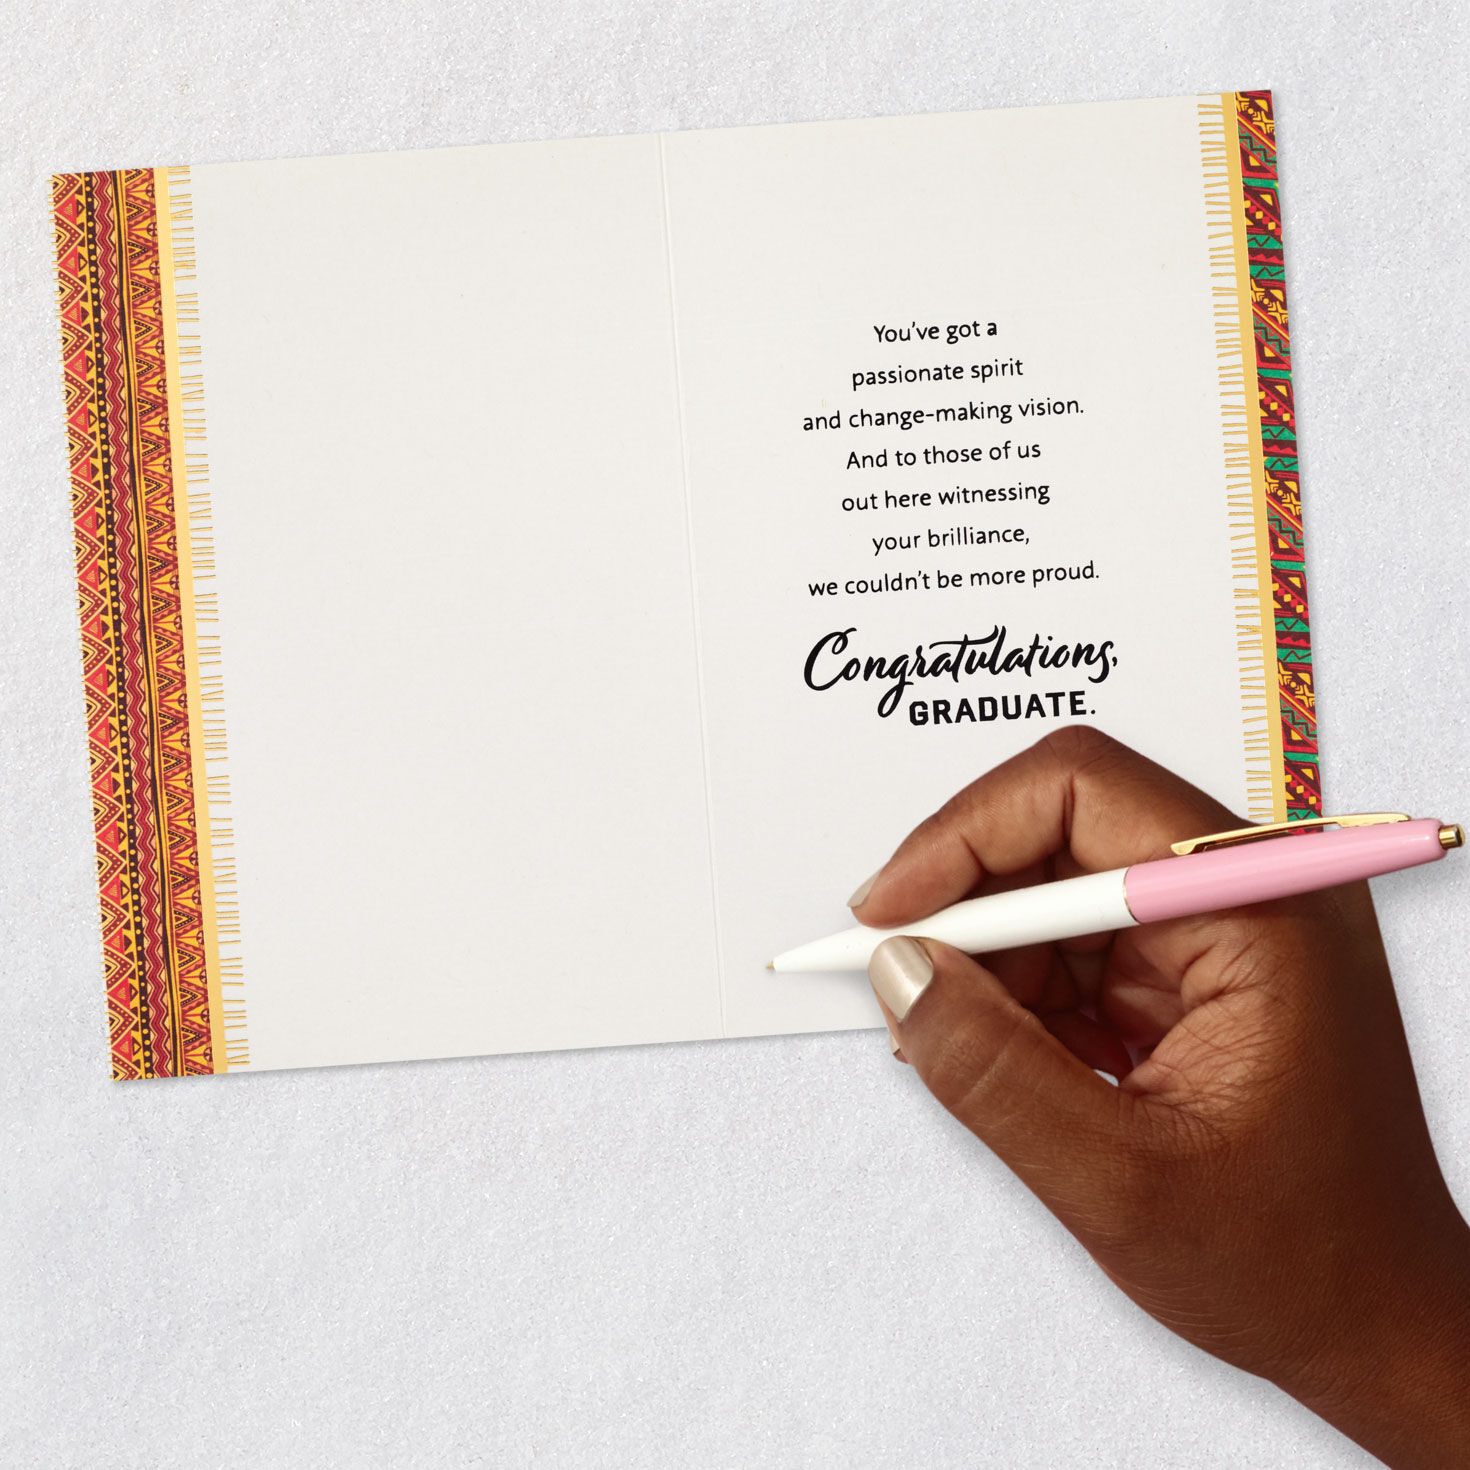 You've got a
passionate spirit
and change-making vision.
And to those of us
out here witnessing
your brilliance,
we couldn't be more proud.
Congratulations,
GRADUATE.